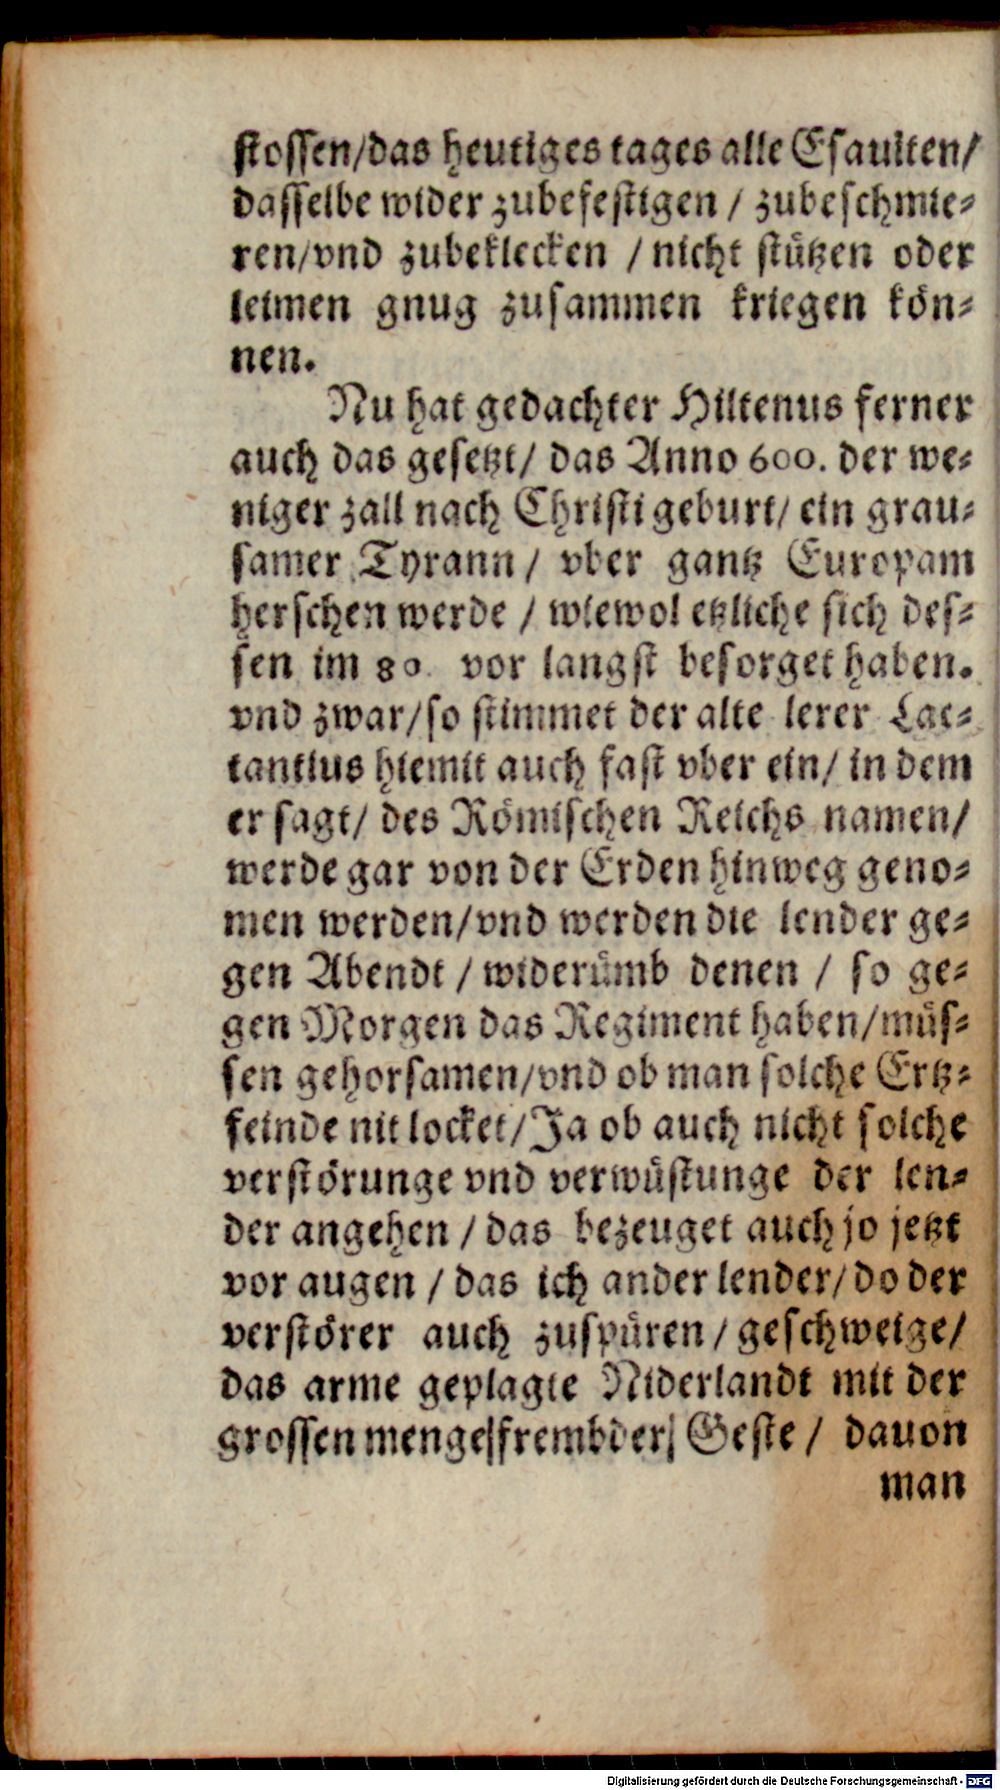 stossen/das heutiges tages alle Esauiten/
dasselbe wider zubefestigen / zubeschmie-
ren/vnd zubeklecken / nicht stützen oder
leimen gnug zusammen kriegen kön-
nen.
Nu hat gedachter Hiltenus ferner
auch das gesetzt/ das Anno 600. der we-
niger zall nach Christi geburt/ ein grau-
samer Tyrann / vber gantz Europam
herschen werde / wiewol etzliche sich des-
sen im 80 vor langst besorget haben.
vnd zwar/so stimmet der alte lerer Lac-
tantius hiemit auch fast vber ein/ in dem
er sagt/ des Römischen Reichs namen/
werde gar von der Erden hinweg geno-
men werden/vnd werden die lender ge-
gen Abendt / widerümb denen / so ge-
gen Morgen das Regiment haben/müs-
sen gehorsamen/vnd ob man solche Ertz-
feinde nit locket/Ja ob auch nicht solche
verstörunge vnd verwüstunge der len-
der angehen / das bezeuget auch jo jetzt
vor augen / das ich ander lender/do der
verstörer auch zuspüren / geschweige/
das arme geplagte Niderlandt mit der
grossen menge frembder Geste / dauon
man
Digitalisierung gefördert durch die Deutsche Forschungsgemeinschaft - DFG